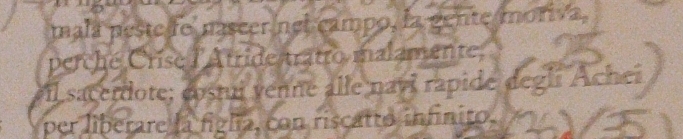 il figlio di Zeus e
mala peste fe' nascer nel campo, la gente moriva,
perché Crise l'Atride trattò malamente,
il sacerdote; costui venne alle navi rapide degli Achei
per liberare la figlia, con riscatto infinito,